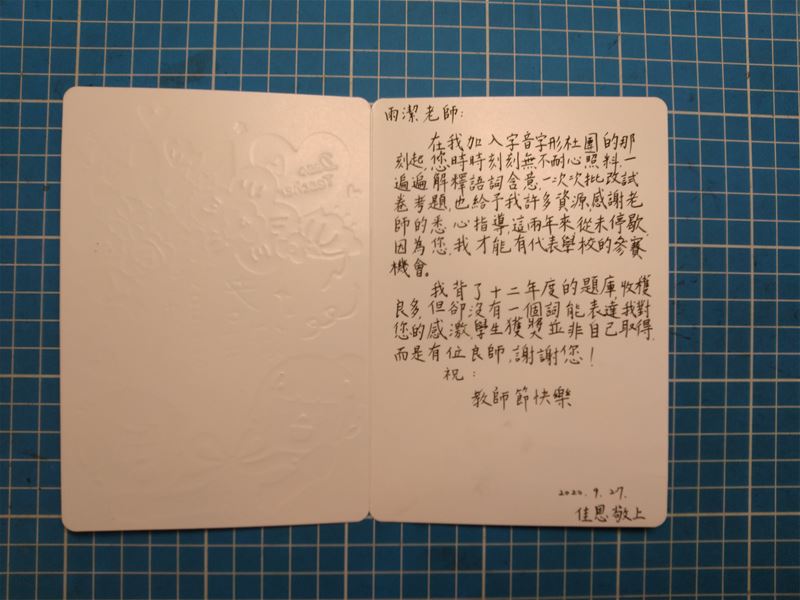 雨潔老師:
在我加入字音字形社團的那
刻起,您時時刻刻無不耐心照料,一
遍遍解釋語詞含意,一次次批改試
卷考題,也給予我許多資源,感謝老
師的悉心指導,這兩年來從未停歇,
因為您,我才能有代表學校的參賽
機會。
我背了十二年度的題庫,收穫
良多,但卻沒有一個詞能表達我對
您的感激,學生獲獎並非自己取得,
而是有位良師,謝謝您!
祝:
教師節快樂
2020.9.27.
佳恩敬上